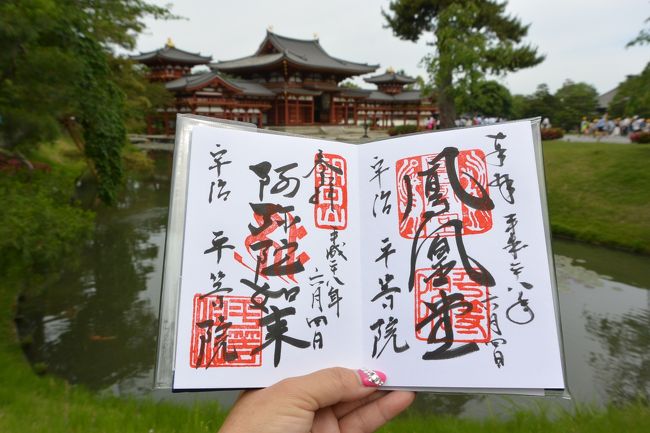 奉拝
鳳凰堂
平成二十八年
六月四日
宇治 平等院
奉拝
平成二十八年
六月四日
阿弥陀如来
宇治 平等院